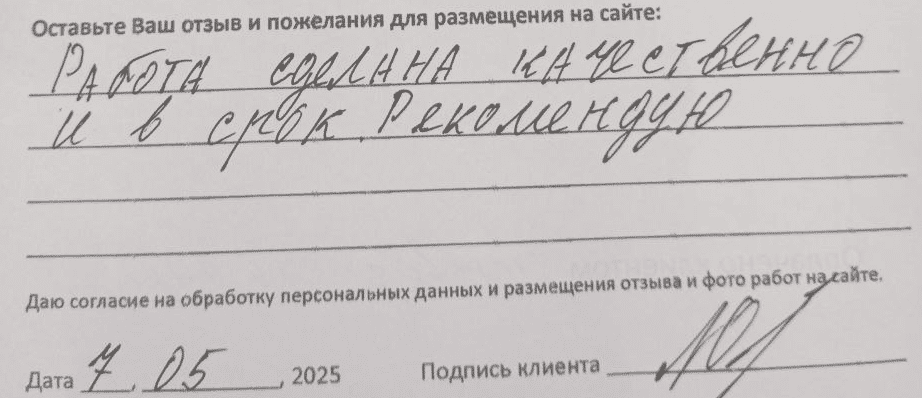 Оставьте Ваш отзыв и пожелания для размещения на сайте:
Работа сделана качественно
и в срок. Рекомендую
Даю согласие на обработку персональных данных и размещения отзыва и фото работ на сайте.
Дата 7. 05, 2025 Подпись клиента